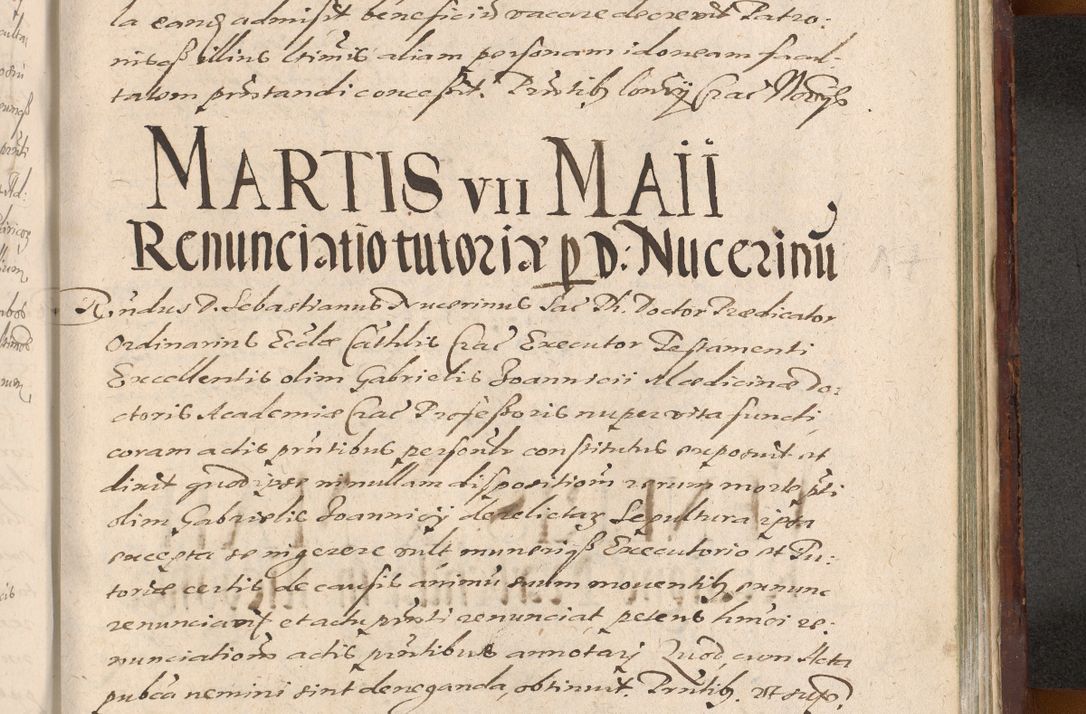 la eang admisit beneficiū vacare decrevit Patro:
nisqß illius ltimis aliam personam idoneam facul-
tatem pn̄tandi concessit. Pn̄tib9
MARTIS VII MAII
Renunciatio tutoriæ p D: Nucerinū
Rn̄dus D. Sebastianus Nucerinus Sac Th. Doctor Prædicator
Ordinarius Ecclæ Cathlis Crac Executor Testamenti
Excellentis olim Gabrielis Joannicii Medicinæ Do:
ctoris Academiæ Crac Professoris nuper vita functi,
coram actis pn̄tibus personlr constitutus exposuit et
dixit quod ipse in nullam dispositionē rerum morte pti
olim Gabrielis Joannicij derelictar Sepultura ipsa
excepta se ingerere vult munerīqß Executorio et Tu:
toriæ certis de causis animū suum moventib9 renunc
renunciavit et actu pn̄ti renunciat petens hmoi re-
nunciationē actis pn̄tibus annotari Quod, cum Acta
pubca nemini sint deneganda, obtinuit. Pn̄tib9 ut supr.